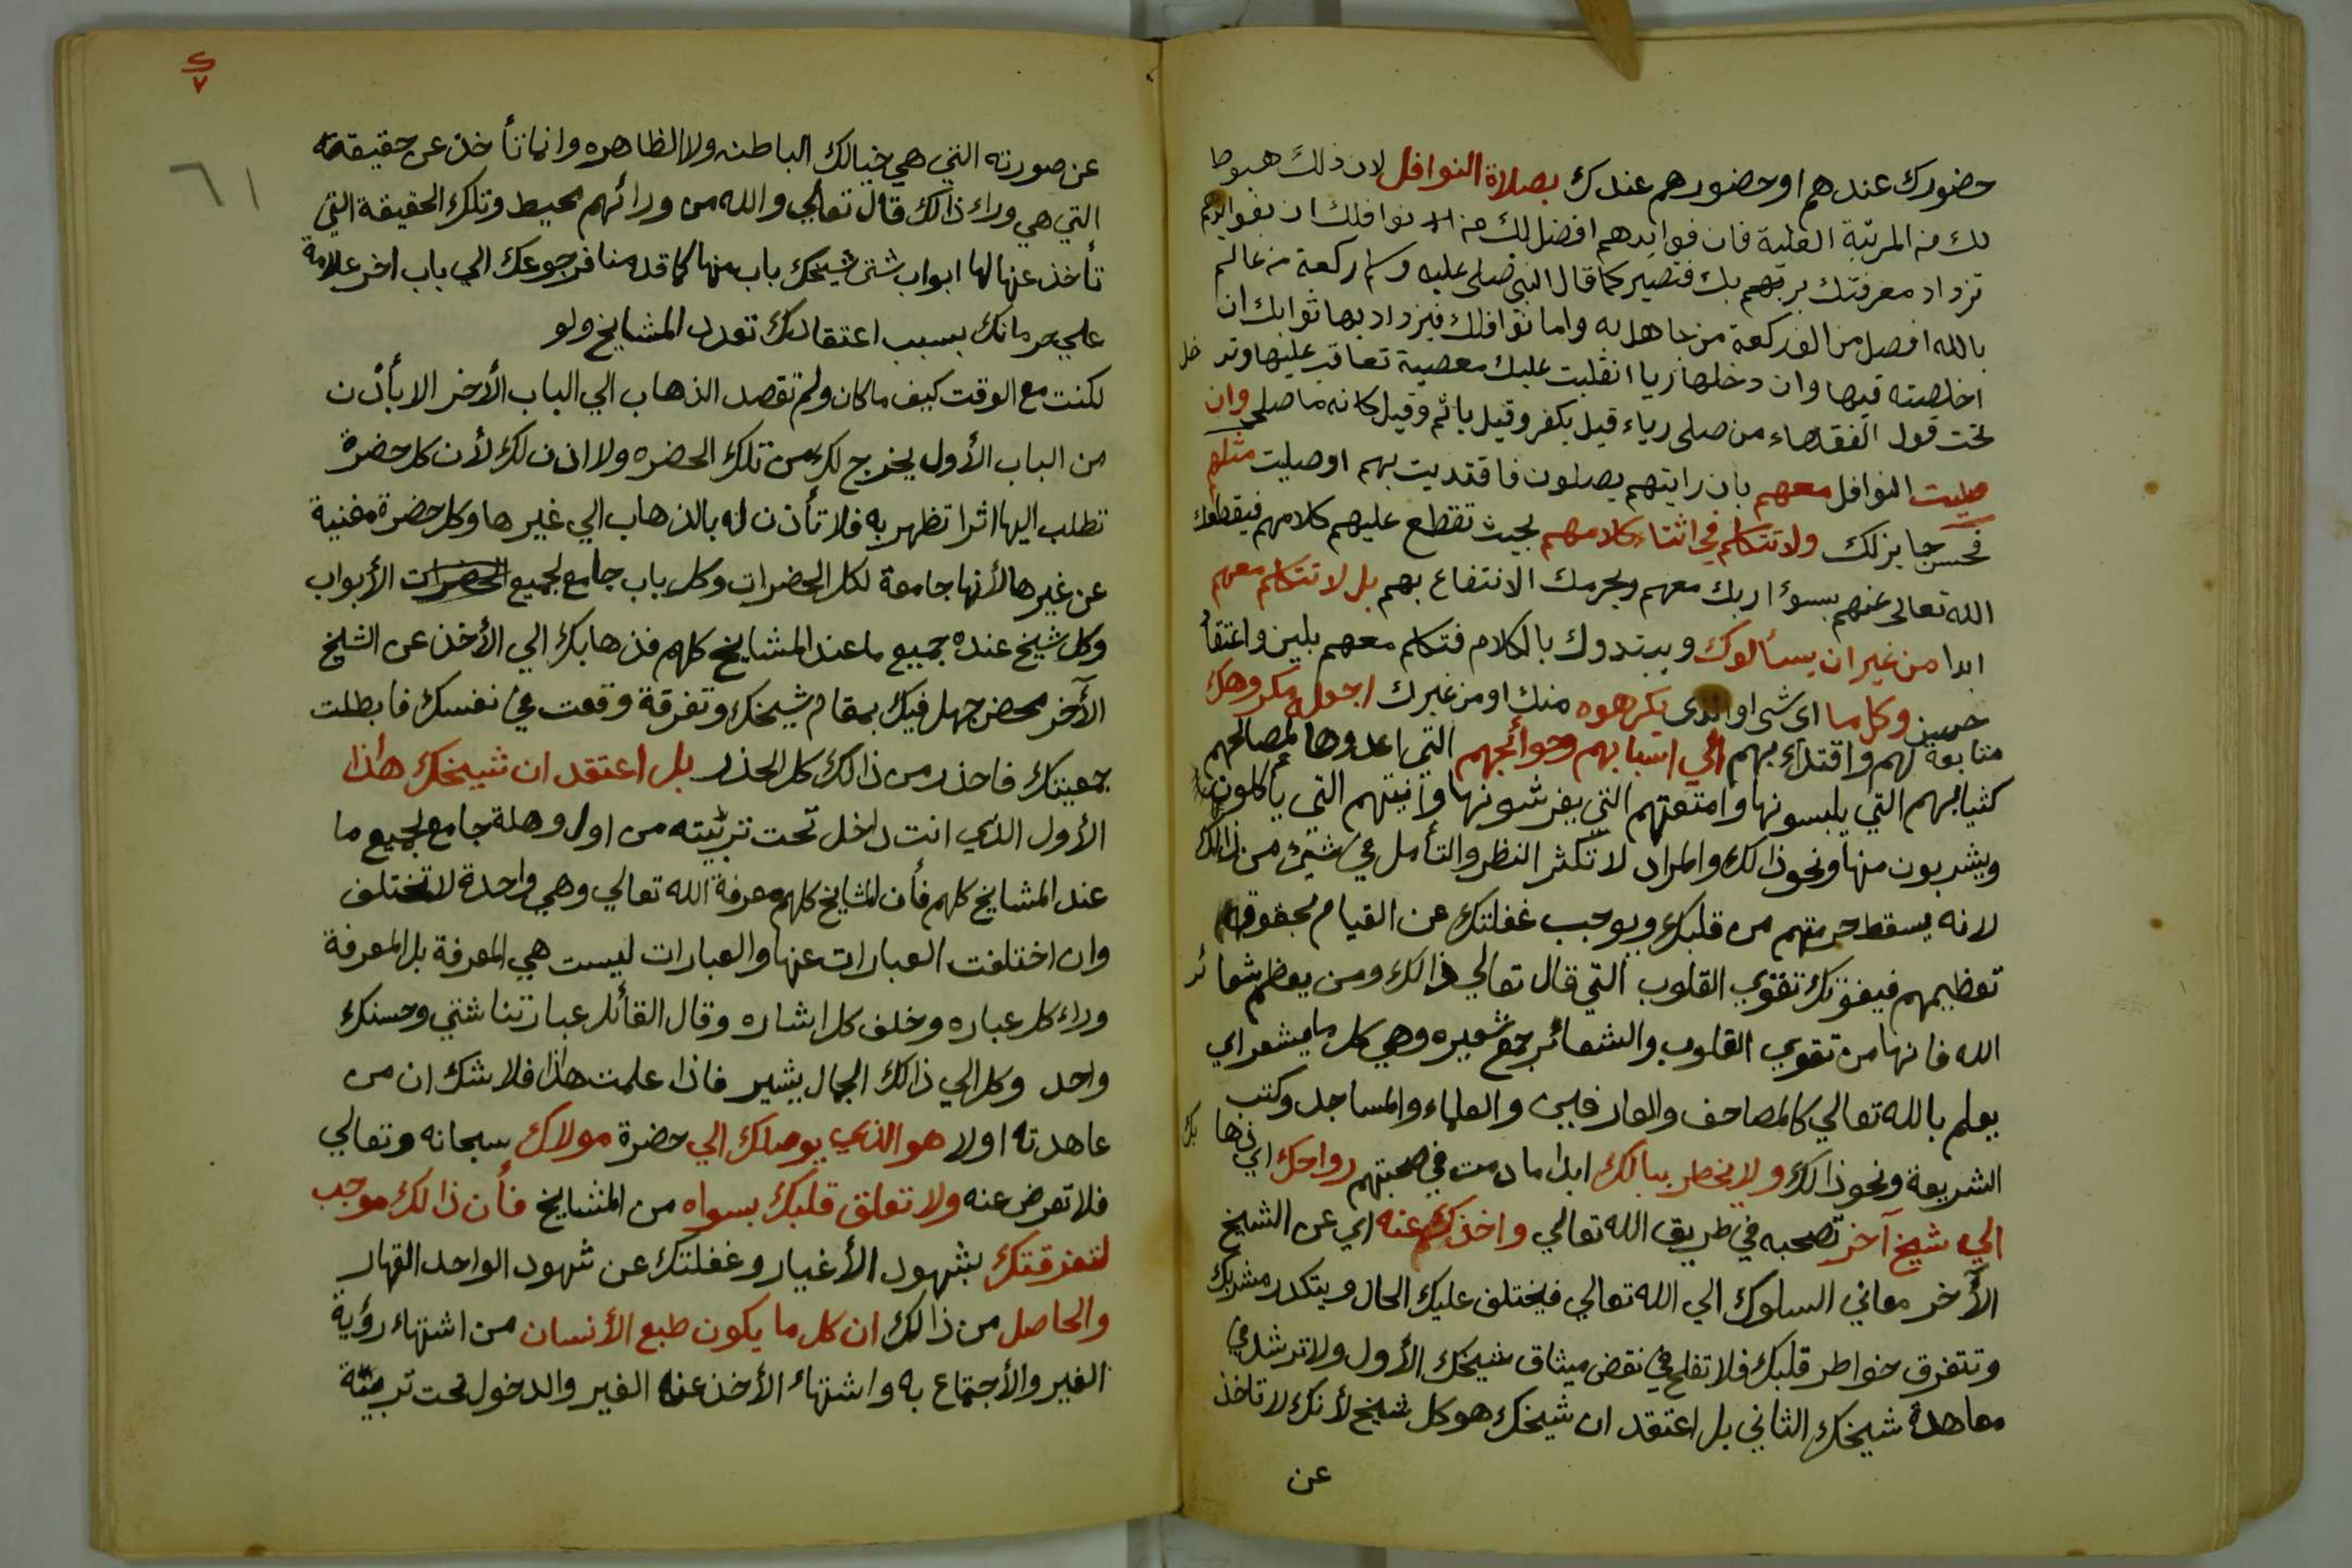 حضورك عندهم او حضورهم عندك بصلاة النوافل لان ذلك هبوطا
لك من المرتبة العلية فان فوايدهم افضل لك من نوافلك ان بفوايدهم
تزداد معرفتك بربهم بك فتصير كما قال النبي صلى عليه وسلم ركعة من عالم
بالله افضل من الف ركعة من جاهل به واما نوافلك فيزداد بها ثوابك ان
اخلصته فيها وان دخلها ريا انقلبت عليك معصية تعاقب عليها وتدخل
تحت قول الفقهاء من صلى رياء قيل يكفر وقيل ياثم وقيل كانه ما صلى وان
صليت النوافل معهم بان رايتهم يصلون فاقتديت بهم او صليت مثلهم
فحسن جايز لك ولا تتكلم في اثناء كلامهم بحيث تقطع عليهم كلامهم فيقطعك
الله تعالى عنهم بسوء ادبك معهم ويحرمك الانتفاع بهم بل لا تتكلم معهم
ابدا من غير ان يسألوك ويبتدوك بالكلام فتكلم معهم بلين واعتقاد
حسن وكلما اي شي او الذي يكرهوه منك او من غيرك اجعله مكروهك
متابعة لهم واقتداء بهم الي اسبابهم وحوائجهم التي اعدوها لمصالحهم
كثيابهم التي يلبسونها وامتعتهم التي يفرشونها وآنيتهم التي ياكلون
ويشربون منها ونحو ذالك والمراد لا تكثر النظر والتأمل في شيئ من ذالك
لانه يسقط حرمتهم من قلبك ويوجب غفلتك عن القيام بحقوقهم
تعظيمهم فيفوتك تقوي القلوب التي قال تعالي ذالك ومن يعظم شعائر
الله فانها من تقوي القلوب والشعائر جمع شعيره وهي كل ما يشعر اي
يعلم بالله تعالي كالمصاحف والعارفين والعلماء والمساجد وكتب
الشريعة ونحو ذالك ولا يخطر ببالك ابدا ما دمت في صحبتهم رواحك اي ذهابك
الي شيخ آخر تصحبه في طريق الله تعالي واخذك عنه اي عن الشيخ
الآخر معاني السلوك الي الله تعالي فيختلف عليك الحال ويتكدر مشربك
وتتفرق خواطر قلبك فلا تفلح في نقض ميثاق شيخك الأول ولا ترشد في
معاهدة شيخك الثاني بل اعتقد ان شيخك هو كل شيخ لأنك لا تاخذ
عن
٦١
عن صورته التي هي خيالك الباطنه ولا الظاهره وانما تأخذ عن حقيقته
التي هي وراء ذالك قال تعالي والله من ورائهم محيط وتلك الحقيقة التي
تأخذ عنها لها ابواب شتي شيخك باب منها كما قدمنا فرجوعك الي باب اخر علامة
علي حرمانك بسبب اعتقادك تعدد المشايخ ولو
لكنت مع الوقت كيف ما كان ولم تقصد الذهاب الي الباب الأخر الا بأذن
من الباب الأول يخرج لك من تلك الحضره ولا اذن لك لأن كل حضرة
تطلب اليها اثرا تظهر به فلا تأذن له بالذهاب الي غيرها وكل حضرة مغنية
عن غيرها لأنها جامعة لكل الحضرات وكل باب جامع لجميع الحضرات الأبواب
وكل شيخ عنده جميع ما عند المشايخ كلهم فذهابك الي الأخذ عن الشيخ
الآخر محض جهل فيك بمقام شيخك وتفرقة وقعت في نفسك فابطلت
جمعيتك فاحذر من ذالك كل الحذر بل اعتقد ان شيخك هاذا
الأول الذي انت داخل تحت تربيته من اول وهلة جامع لجميع ما
عند المشايخ كلهم فأن المشايخ كلهم معرفة الله تعالي وهي واحدة لا تختلف
وان اختلفت العبارات عنها والعبارات ليست هي المعرفة بل المعرفة
وراء كل عباره وخلف كل اشاره وقال القائل عباراتنا شتي وحسنك
واحد وكل الي ذالك الجمال يشير فاذا علمت هاذا فلا شك ان من
عاهدته اولا هو الذي يوصلك الي حضرة مولاك سبحانه وتعالي
فلا تعرض عنه ولا تعلق قلبك بسواه من المشايخ فأن ذالك موجب
لتفرقتك بشهود الأغيار وغفلتك عن شهود الواحد القهار
والحاصل من ذالك ان كل ما يكون طبع الأنسان من اشتهاء رؤية
الغير والأجتماع به واشتهاء الأخذ عنه الغير والدخول تحت تربيته